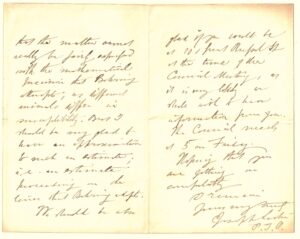 that the matter cannot
really be fairly expressed
with the mathematical
precision that Behring
attempts; as different
animals differ in
susceptibility. But I
should be very glad to
have an approximation
to such an estimate;
i.e. an estimate
proceeding on the
lines that Behring adopts.
We should be also
glad if you could be
at 12, Great Russell St
at the time of the
Council Meeting, as
it is very likely we
shall wish to have
information from you.
The Council meets
at 5 on Friday.
Hoping that you
are getting on
comfortably
I remain
Yours very truly
Joseph Lister
P.T.O.